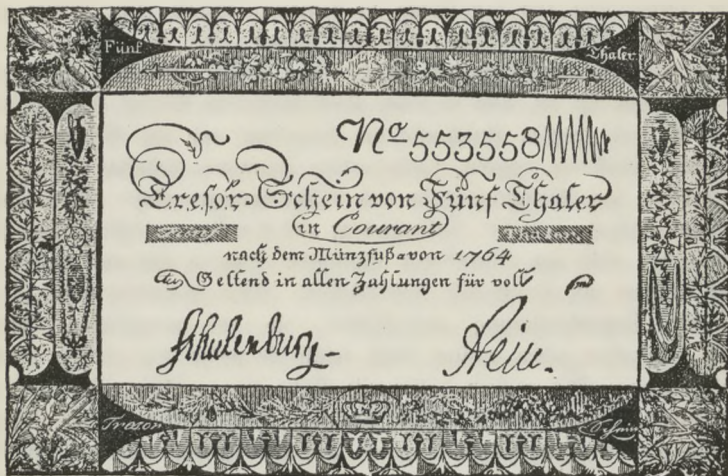 Fünf Thaler
Nº 553558
Tresor-Schein von Fünf Thaler
in Courant
nach dem Münzfuß von 1764
Geltend in allen Zahlungen für voll
Schulenburg
Stein.
Tresor Schein